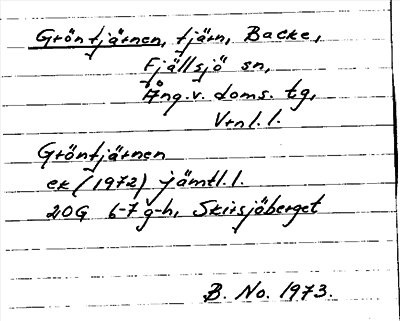 Gröntjärnen, tjärn, Backe,
Fjällsjö sn,
Ång.v. doms. tg,
Vrnl.l.
Gröntjärnen
ek (1972) jämtl.l.
20G 6-7 g-h, Skirsjöberget
B. No. 1973.